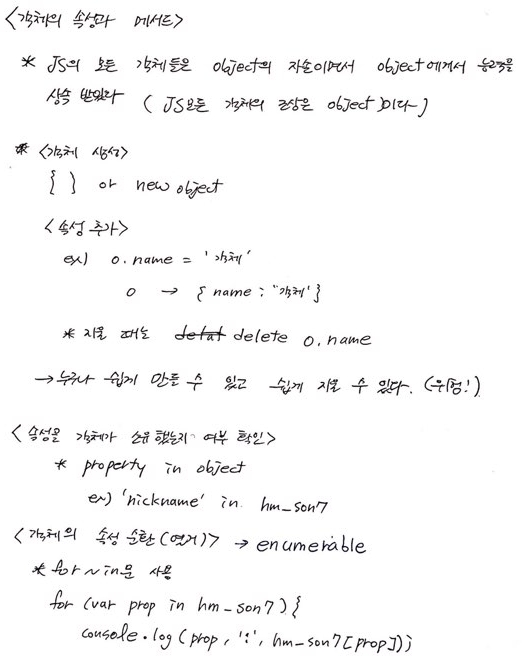 <객체의 속성과 메서드>
* JS의 모든 객체들은 object의 자손이면서 object에게서 능력을
상속 받았다 (JS모든 객체의 조상은 object이다)
* <객체 생성>
{ } or new object
<속성 추가>
ex) o.name = '객체'
o → { name : "객체' }
* 지울 때는 delete o.name
→ 누구나 쉽게 만들 수 있고 쉽게 지울 수 있다. (위험!)
<속성을 객체가 소유했는지 여부 확인>
* property in object
ex) 'nickname' in hm_son7
<객체의 속성 순환(열거)> → enumerable
* for ~ in문 사용
for (var prop in hm_son7) {
console.log (prop, ':', hm_son7[prop]);